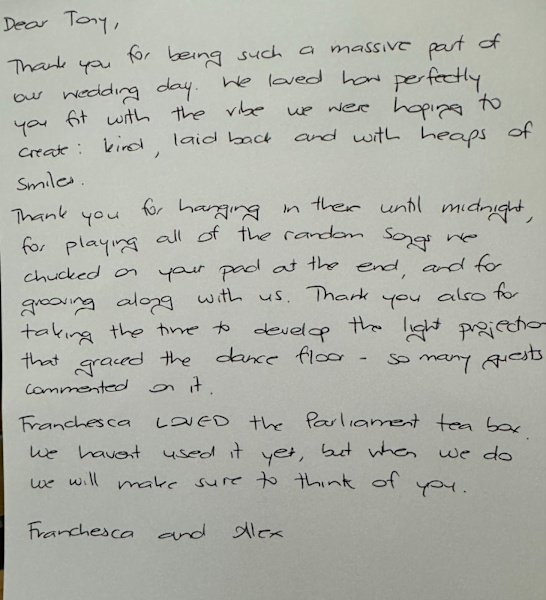 Dear Tony,
Thank you for being such a massive part of
our wedding day. We loved how perfectly
you fit with the vibe we were hoping to
create: kind, laid back and with heaps of
smiles.
Thank you for hanging in there until midnight,
for playing all of the random songs we
chucked on your pad at the end, and for
grooving along with us. Thank you also for
taking the time to develop the light projection
that graced the dance floor - so many guests
commented on it.
Franchesca LOVED the Parliament tea box.
We havent used it yet, but when we do
we will make sure to think of you.
Franchesca and Alex